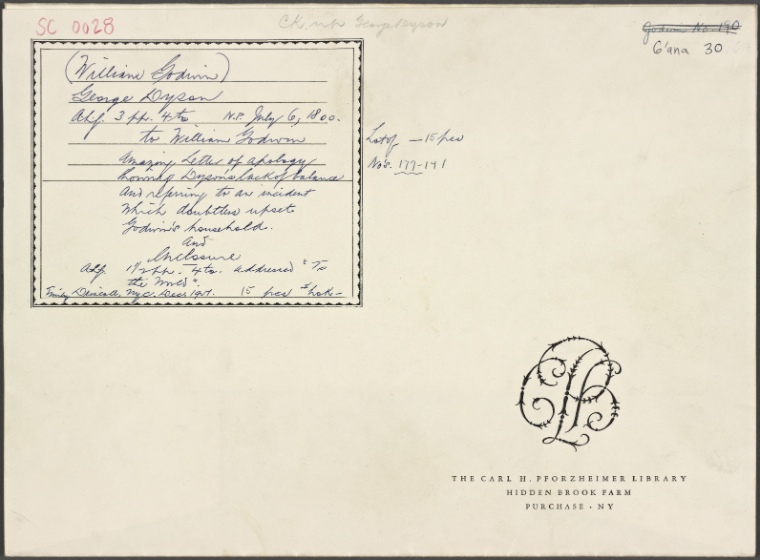 SC 0028
CK. with George Dyson
Godwin No. 190
G'ana 30
(William Godwin)
George Dyson
ALS. 3 pp. 4to N.P. July 6, 1800.
to William Godwin
Amazing Letter of apology
showing Dyson's lack of balance
And referring to an incident
Which doubtless upset
Godwin's household.
And
Enclosure
1 1/2 pp. - 4to. addressed "To
the World".
Emily Driscoll, NYC. Decr 15 pcs
Lot of - 15 pcs
No's. 177-191
THE CARL H. PFORZHEIMER LIBRARY
HIDDEN BROOK FARM
PURCHASE · NY